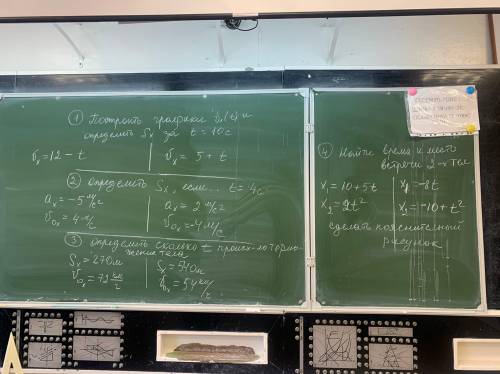 ① Построить графики υₓ(t) и
определить Sₓ за t = 10с
υₓ = 12 - t
υₓ = 5 + t
② определить Sₓ, если... t = 4с
aₓ = -5 м/с²
υ₀ₓ = 4 м/с
aₓ = 2 м/с²
υ₀ₓ = -4 м/с
③ определить сколько t происх-ло тормо-
жение тела
Sₓ = 270м
υ₀ₓ = 72 км/г
Sₓ = 540м
υ₀ₓ = 54 км/г
④ Найти время и место
встречи 2-х тел
x₁ = 10 + 5t
x₂ = 2t²
x₁ = -8t
x₂ = -10 + t²
сделать пояснительной
рисунок